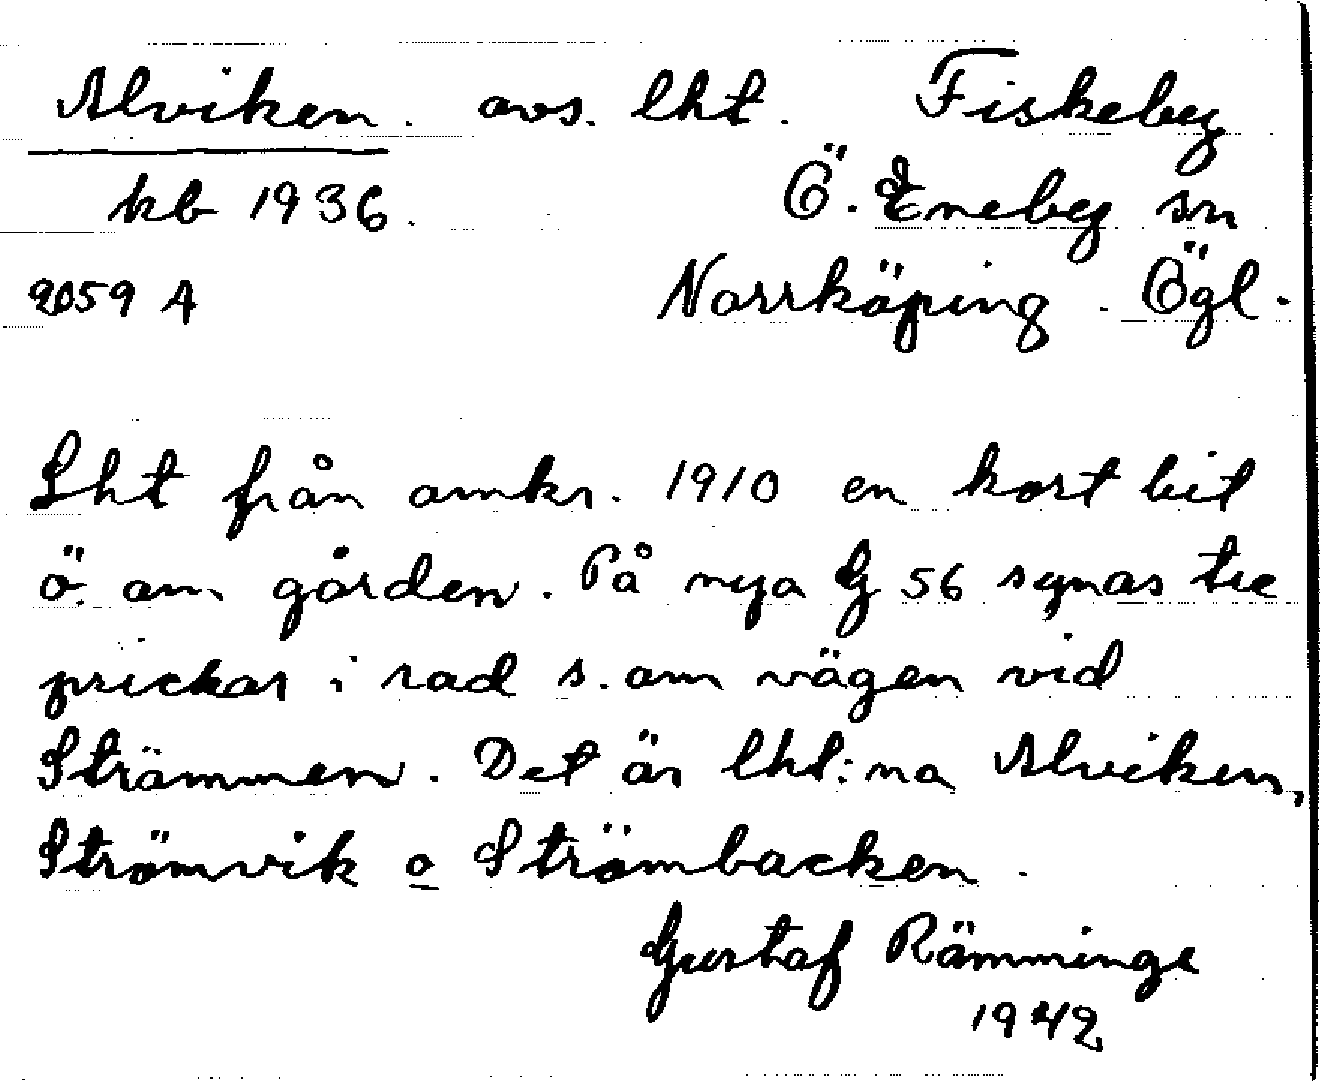 Alviken. avs. lht. Fiskeby
kb 1936. Ö. Eneby sn
2059 A Norrköping. Ögl.
Lht från omkr. 1910 en kort bit
ö. om gården. På nya G 56 synas tre
prickar i rad s. om vägen vid
Strömmen. Det är lht:na Alviken,
Strömvik o Strömbacken.
Gustaf Rämminge
1942